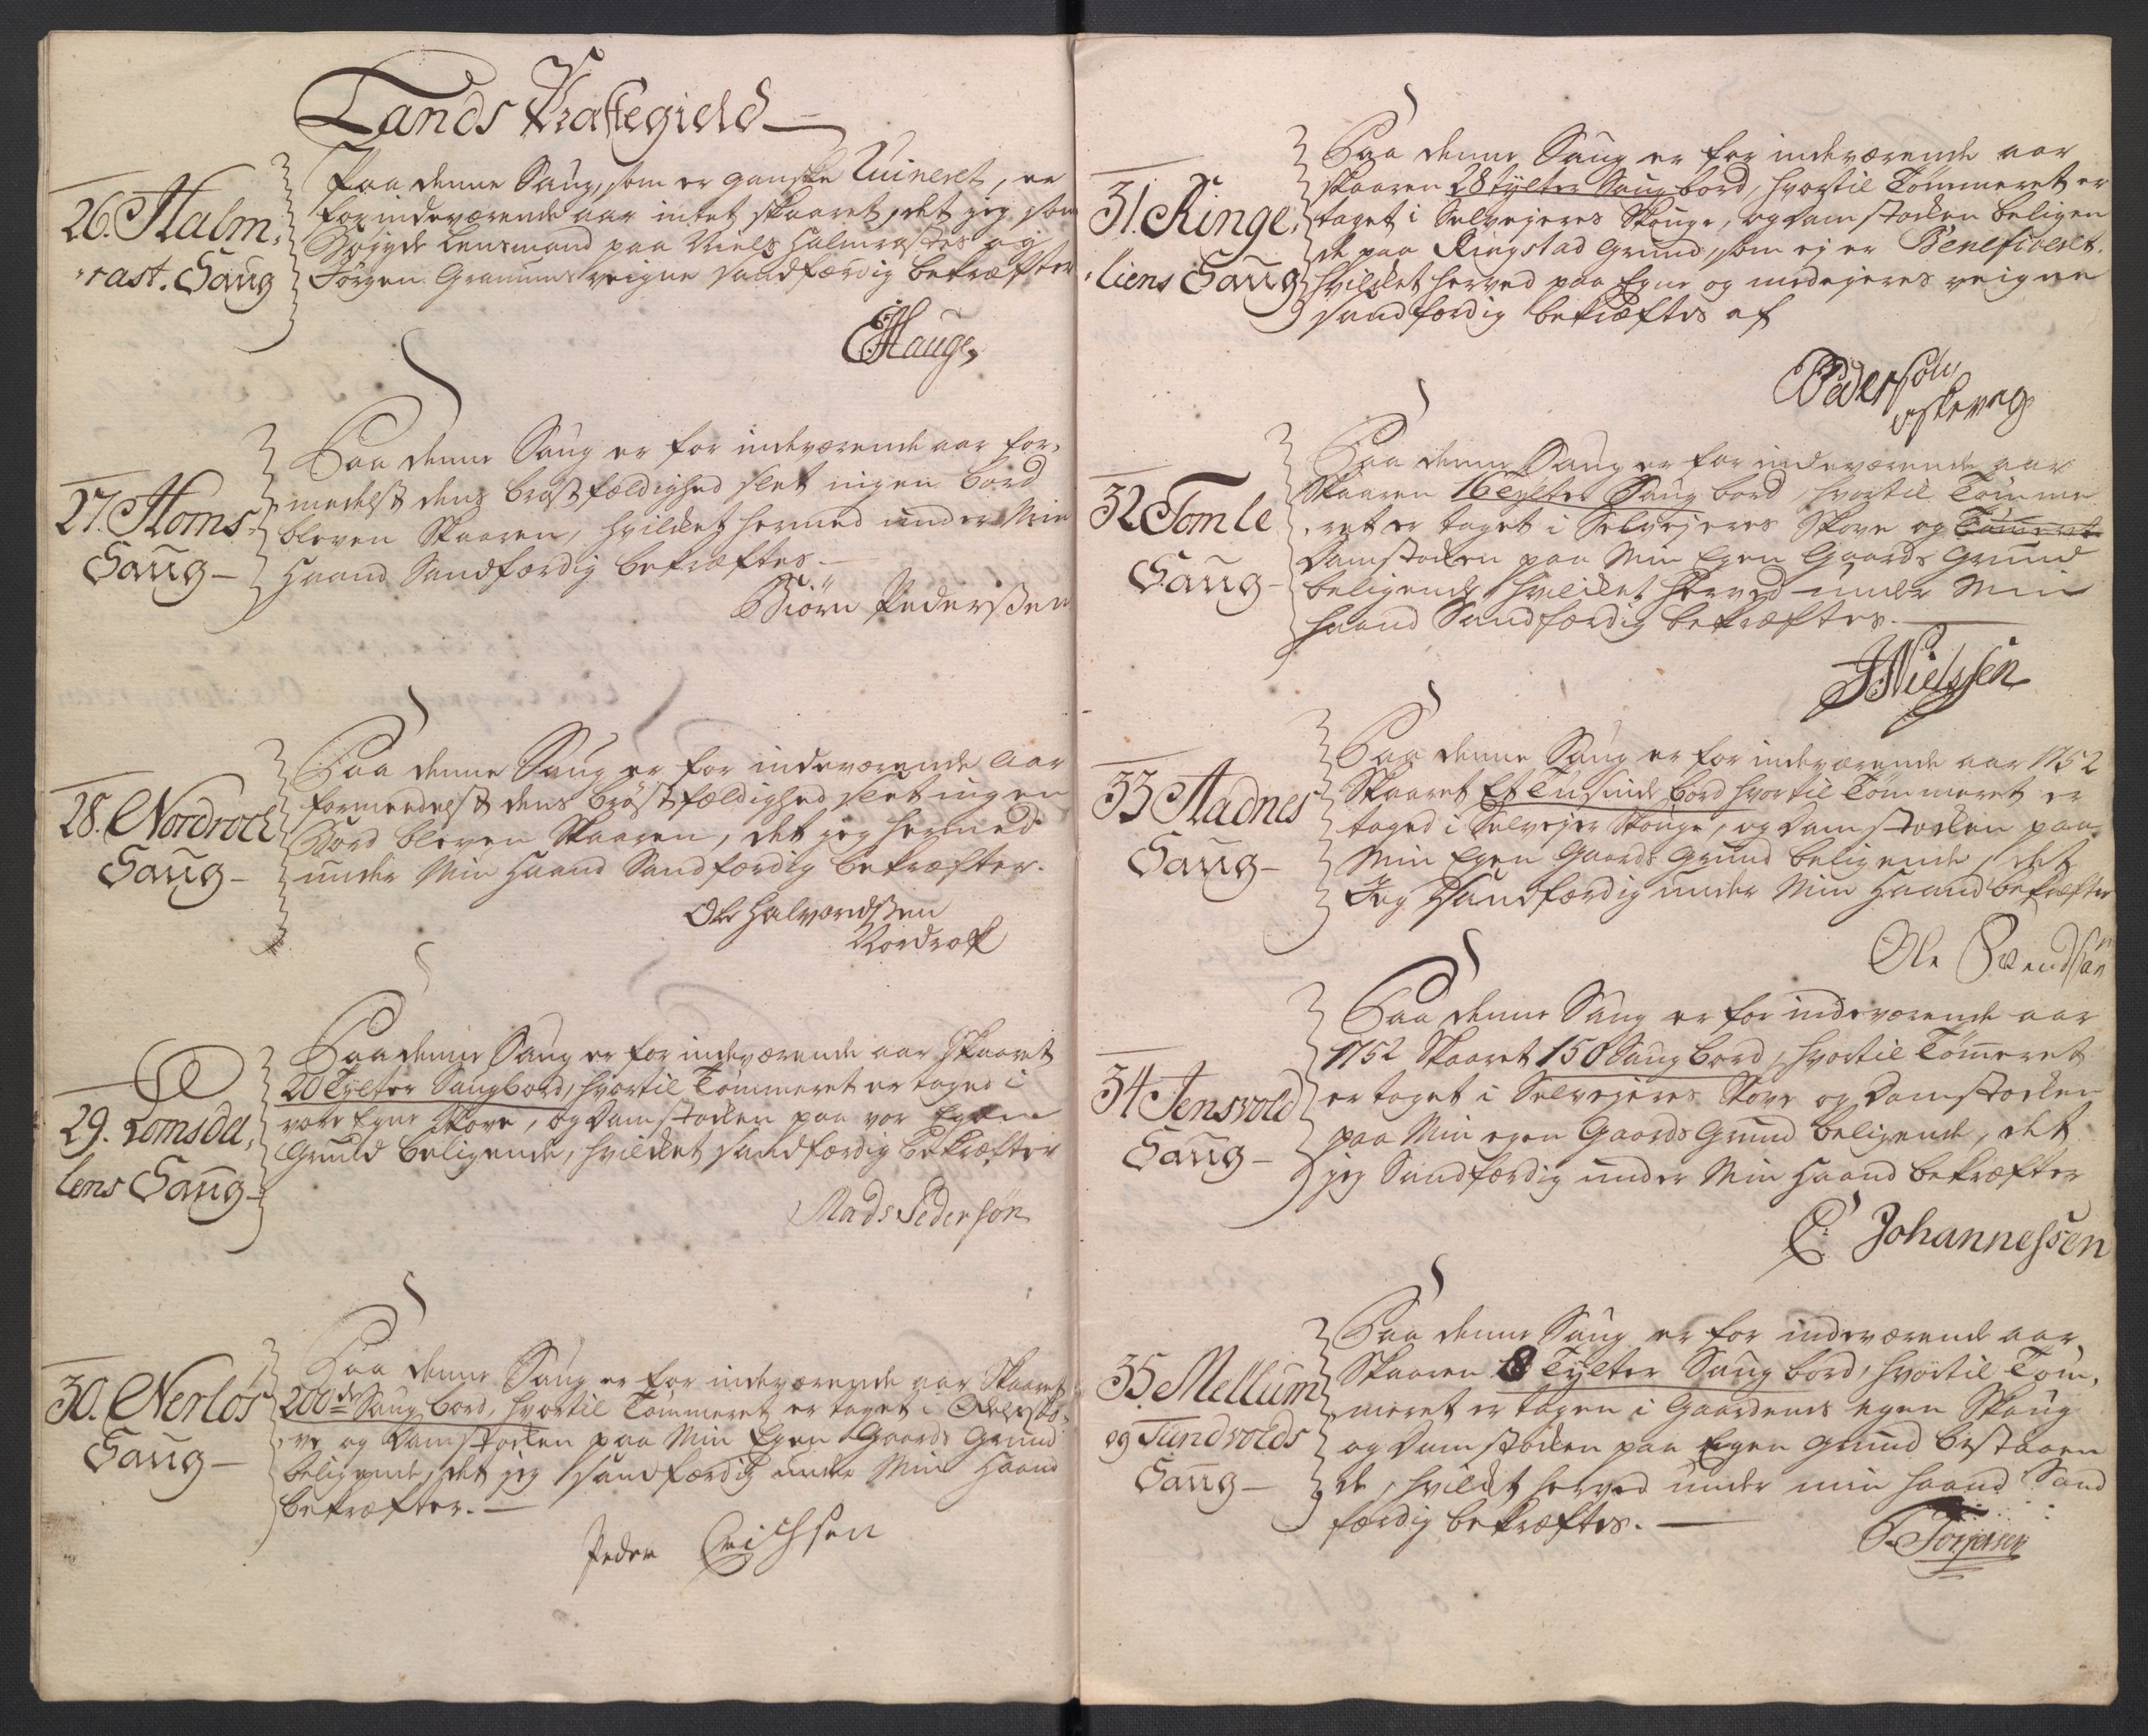 Lands Præstegield
26. Halm,
rast. Saug
Paa denne Saug, som er ganske Ruineret, er
for indeværende aar intet skaaret, det jeg som
Bøyde Lensmand paa Niels Halmrastes og
Jørgen Granums veigne sandfærdig bekræfter
EHauge,
27. Homs
Saug
Paa denne Saug er for indeværende aar for,
medelst dens brøstfældighed slet ingen bord
bleven Skaaren, hvilket hermed under Min
Haand Sandfærdig bekræftes.
Biörn Pederssen
28. Nordroch
Saug
Paa denne Saug er for indeværende Aar
formedelst dens brøstfældighed slet ingen
Bord bleven Skaaren, det jeg hermed
under Min Haand Sandfærdig bekræfter.
Ole Halvordssen
Nordrok
29. Lomsda,
lens Saug
Paa denne Saug er for indeværende aar Skaaret
20 Tylter Saugbord, hvortil Tømmeret er taged i
vore Egne Skove, og Damstocken paa vor Egen
Grund beligende, hvilcket sandfærdig bekræfter
Mads Pedersøn
30. Nerlös
Saug
Paa denne Saug er for indeværende aar Skaaret
200de Saug bord, hvortil Tømmeret er taget i Odelssko,
ve og Damstocken paa Min Egen Gaards Grund
beligende, det jeg sandfærdig under Min Haand
bekræfter.
Peder Erichsen
31. Ringe,
liens Saug
Paa denne Saug er for indeværende aar
skaaren 28 tylter Saug bord, hvortil Tømmeret er
taget i Selvejeres Skouge, og Damstocken beligen
de paa Ringstad Grund, som ej er Beneficeret.
hvilcket herved paa Egne og medejeres veigne
sandfærdig bekræftes af
Pedersøn
32 Tomle
Saug
Paa denne Saug er for indeværende aar
Skaaren 16 tylter Saug bord, hvortil Tømme
ret er taget i Selvejeres Skove og Tømmeret
Damstocken paa Min Egen Gaards Grund
beligende, hvilcket herved under Min
haand Sandfærdig bekræftes.
JNielssen
33 Hadnes
Saug
Paa denne Saug er for indeværende aar 1752
Skaaret Et Tusinde bord hvortil Tømmeret er
taged i Selvejer Skouge, og Damstocken paa
Min Egen Gaards Grund beligende, det
Jeg Sandfærdig under Min Haand bekræfter
Ole Svendsøn
34 Jensvold
Saug
Paa denne Saug er for indeværende aar
1752 Skaaret 150 Saug bord, hvortil Tømmeret
er taget i Selvejeres Skove og Damstocken
paa Min egen Gaards Grund beligende, det
jeg Sandfærdig under Min Haand bekræfter
C: Johannessen
35. Mellum
og Sundvolds
Saug
Paa denne Saug er for indeværende aar
Skaaren 8 Tylter Saug bord, hvortil Tøm,
meret er tagen i Gaardens egen Skoug
og Damstocken paa Egen Grund bestaaen
de, hvilket herved under min haand Sand
færdig bekræftes.
Torgersen